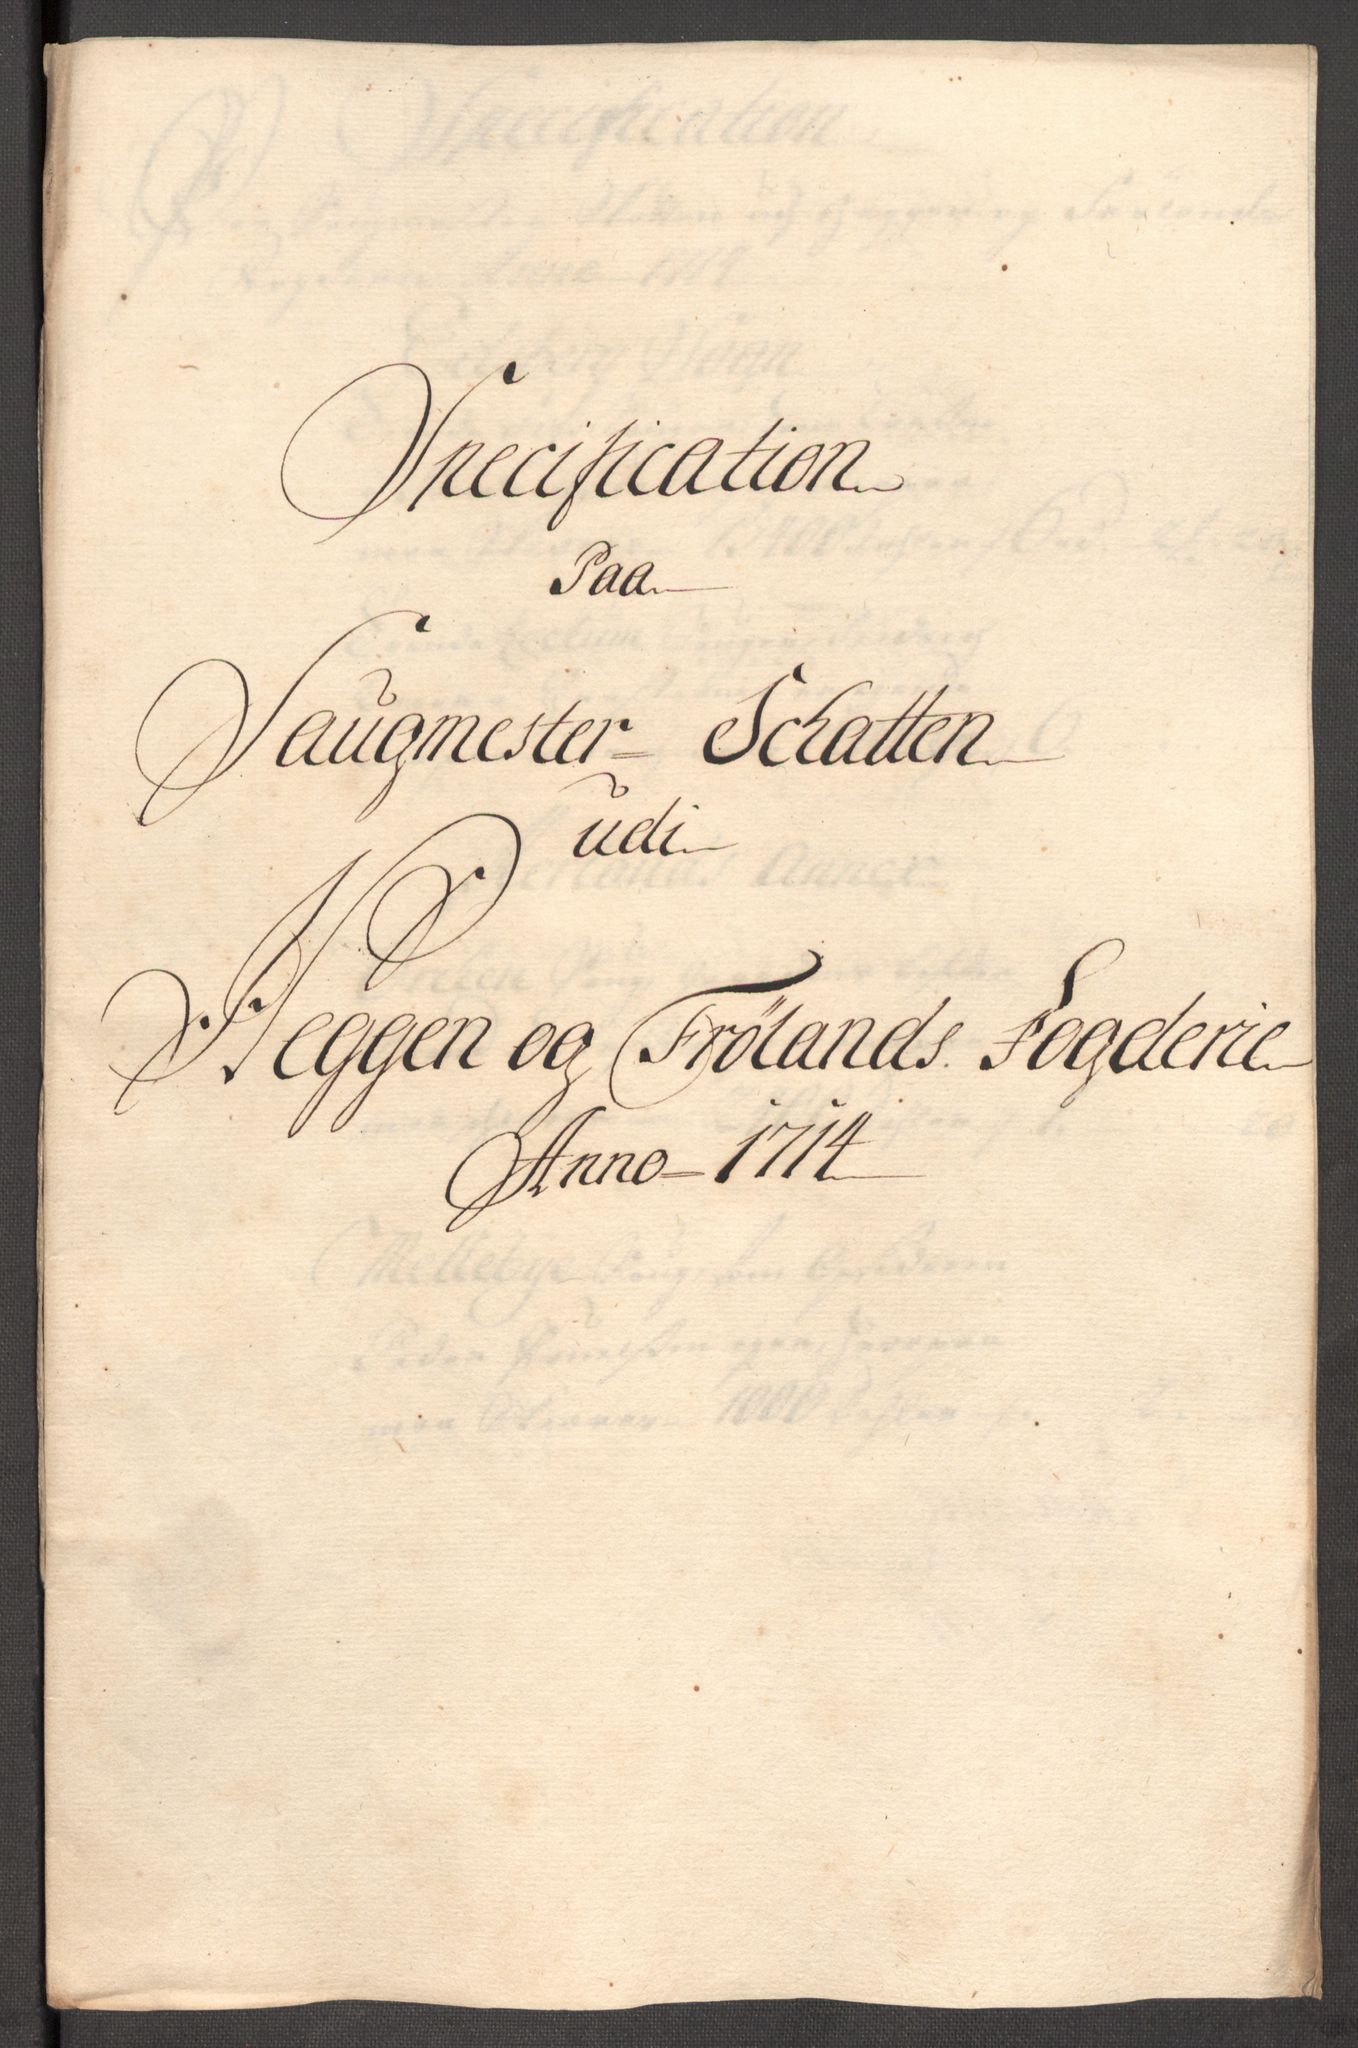 Specification
Paa
Saugmester- Schatten
udi
Heggen og Frølands Fogderie
Anno 1714